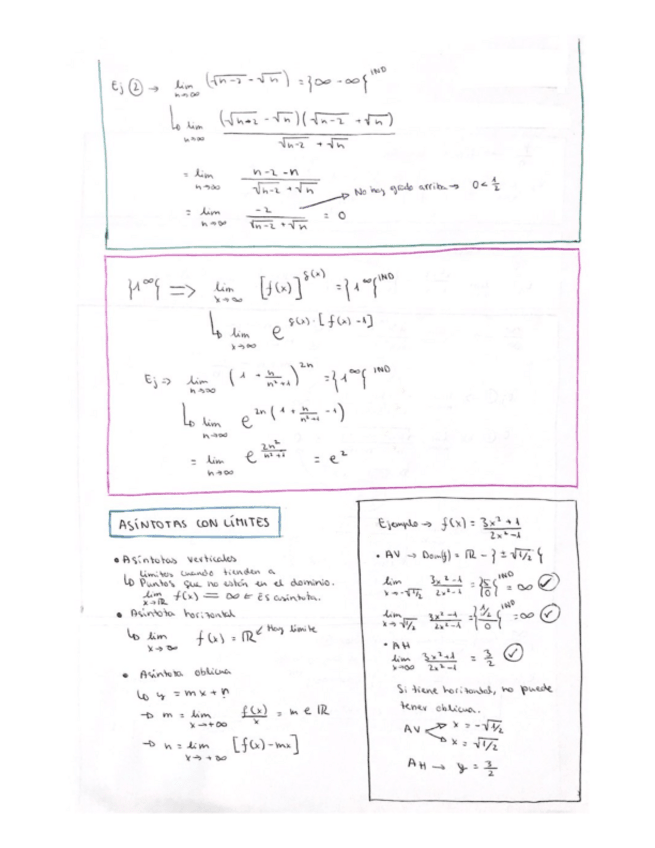 Ej ② → lim n→∞ (√n-2 - √n) = {∞ - ∞} IND
↳ lim n→∞ (√n-2 - √n)(√n-2 + √n) / √n-2 + √n
= lim n→∞ n-2-n / √n-2 + √n
No hay grado arriba → 0 < 1/2
= lim n→∞ -2 / √n-2 + √n = 0
{1^∞} ⟹ lim x→∞ [f(x)]^g(x) = {1^∞} IND
↳ lim x→∞ e^g(x)·[f(x)-1]
Ej ⇒ lim n→∞ (1 + n/n²+1)^2n = {1^∞} IND
↳ lim n→∞ e^2n(1 + n/n²+1 - 1)
= lim n→∞ e^2n²/n²+1 = e²
ASÍNTOTAS CON LÍMITES
• Asíntotas verticales
Límites cuando tienden a
↳ Puntos que no están en el dominio.
lim x→ℝ f(x) = ∞ ← Es asíntota.
• Asíntota horizontal
↳ lim x→∞ f(x) = ℝ ↙ Hay límite
• Asíntota oblicua
↳ y = mx + n
→ m = lim x→+∞ f(x)/x = m ∈ ℝ
→ n = lim x→+∞ [f(x) - mx]
Ejemplo → f(x) = 3x²+1 / 2x²-1
• AV → Dom(f) = ℝ - {±√1/2}
lim x→-√1/2 3x²-1 / 2x²-1 = IND = ∞ ✓
lim x→√1/2 3x²-1 / 2x²-1 = {1/2 / 0} IND = ∞ ✓
• AH
lim x→∞ 3x²+1 / 2x²-1 = 3/2 ✓
Si tiene horizontal, no puede
tener oblicua.
AV x = -√1/2
x = √1/2
AH → y = 3/2